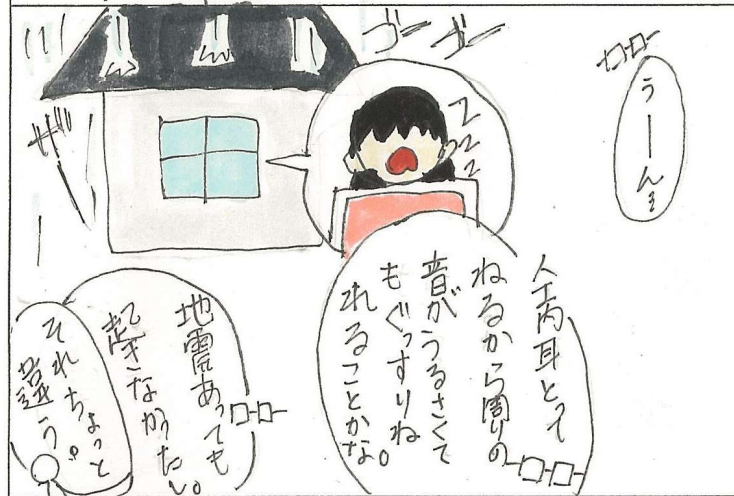 うーん…
ゴー ゴー
ZZZ
ザー
人工内耳とって
ねるから周りの
音がうるさくて
もぐっすりね
れることかな。
地震あっても
起きなかったし。
それちょっと
違う。